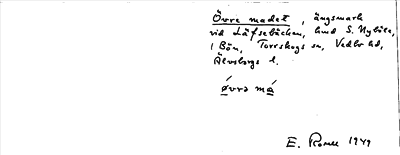 Övre madet, ängsmark
vid Läfsebäcken, hmd S. Nyböle,
1 Bön, Torrskogs sn, Vedbo hd,
Älvsborgs l.
ǿvrə má
E. 1949